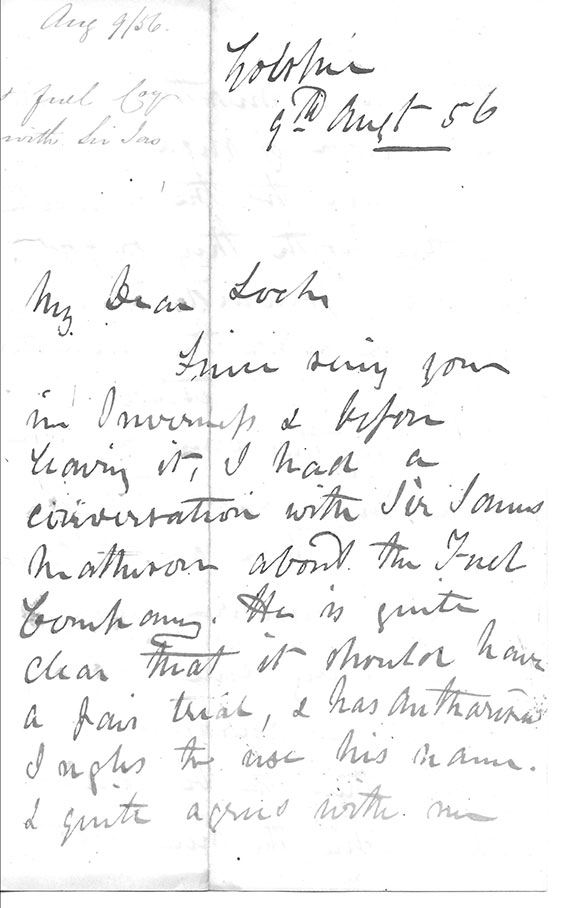 Aug 9/56.
fuel Coy
with Sir Jas
Golspie
9th Augt 56
My Dear Loch
Since seeing you
in Inverness & before
leaving it, I had a
conversation with Sir James
Matheson about the Fuel
Company. He is quite
clear that it should have
a fair trial, & has authorised
to use his name.
& quite agrees with me